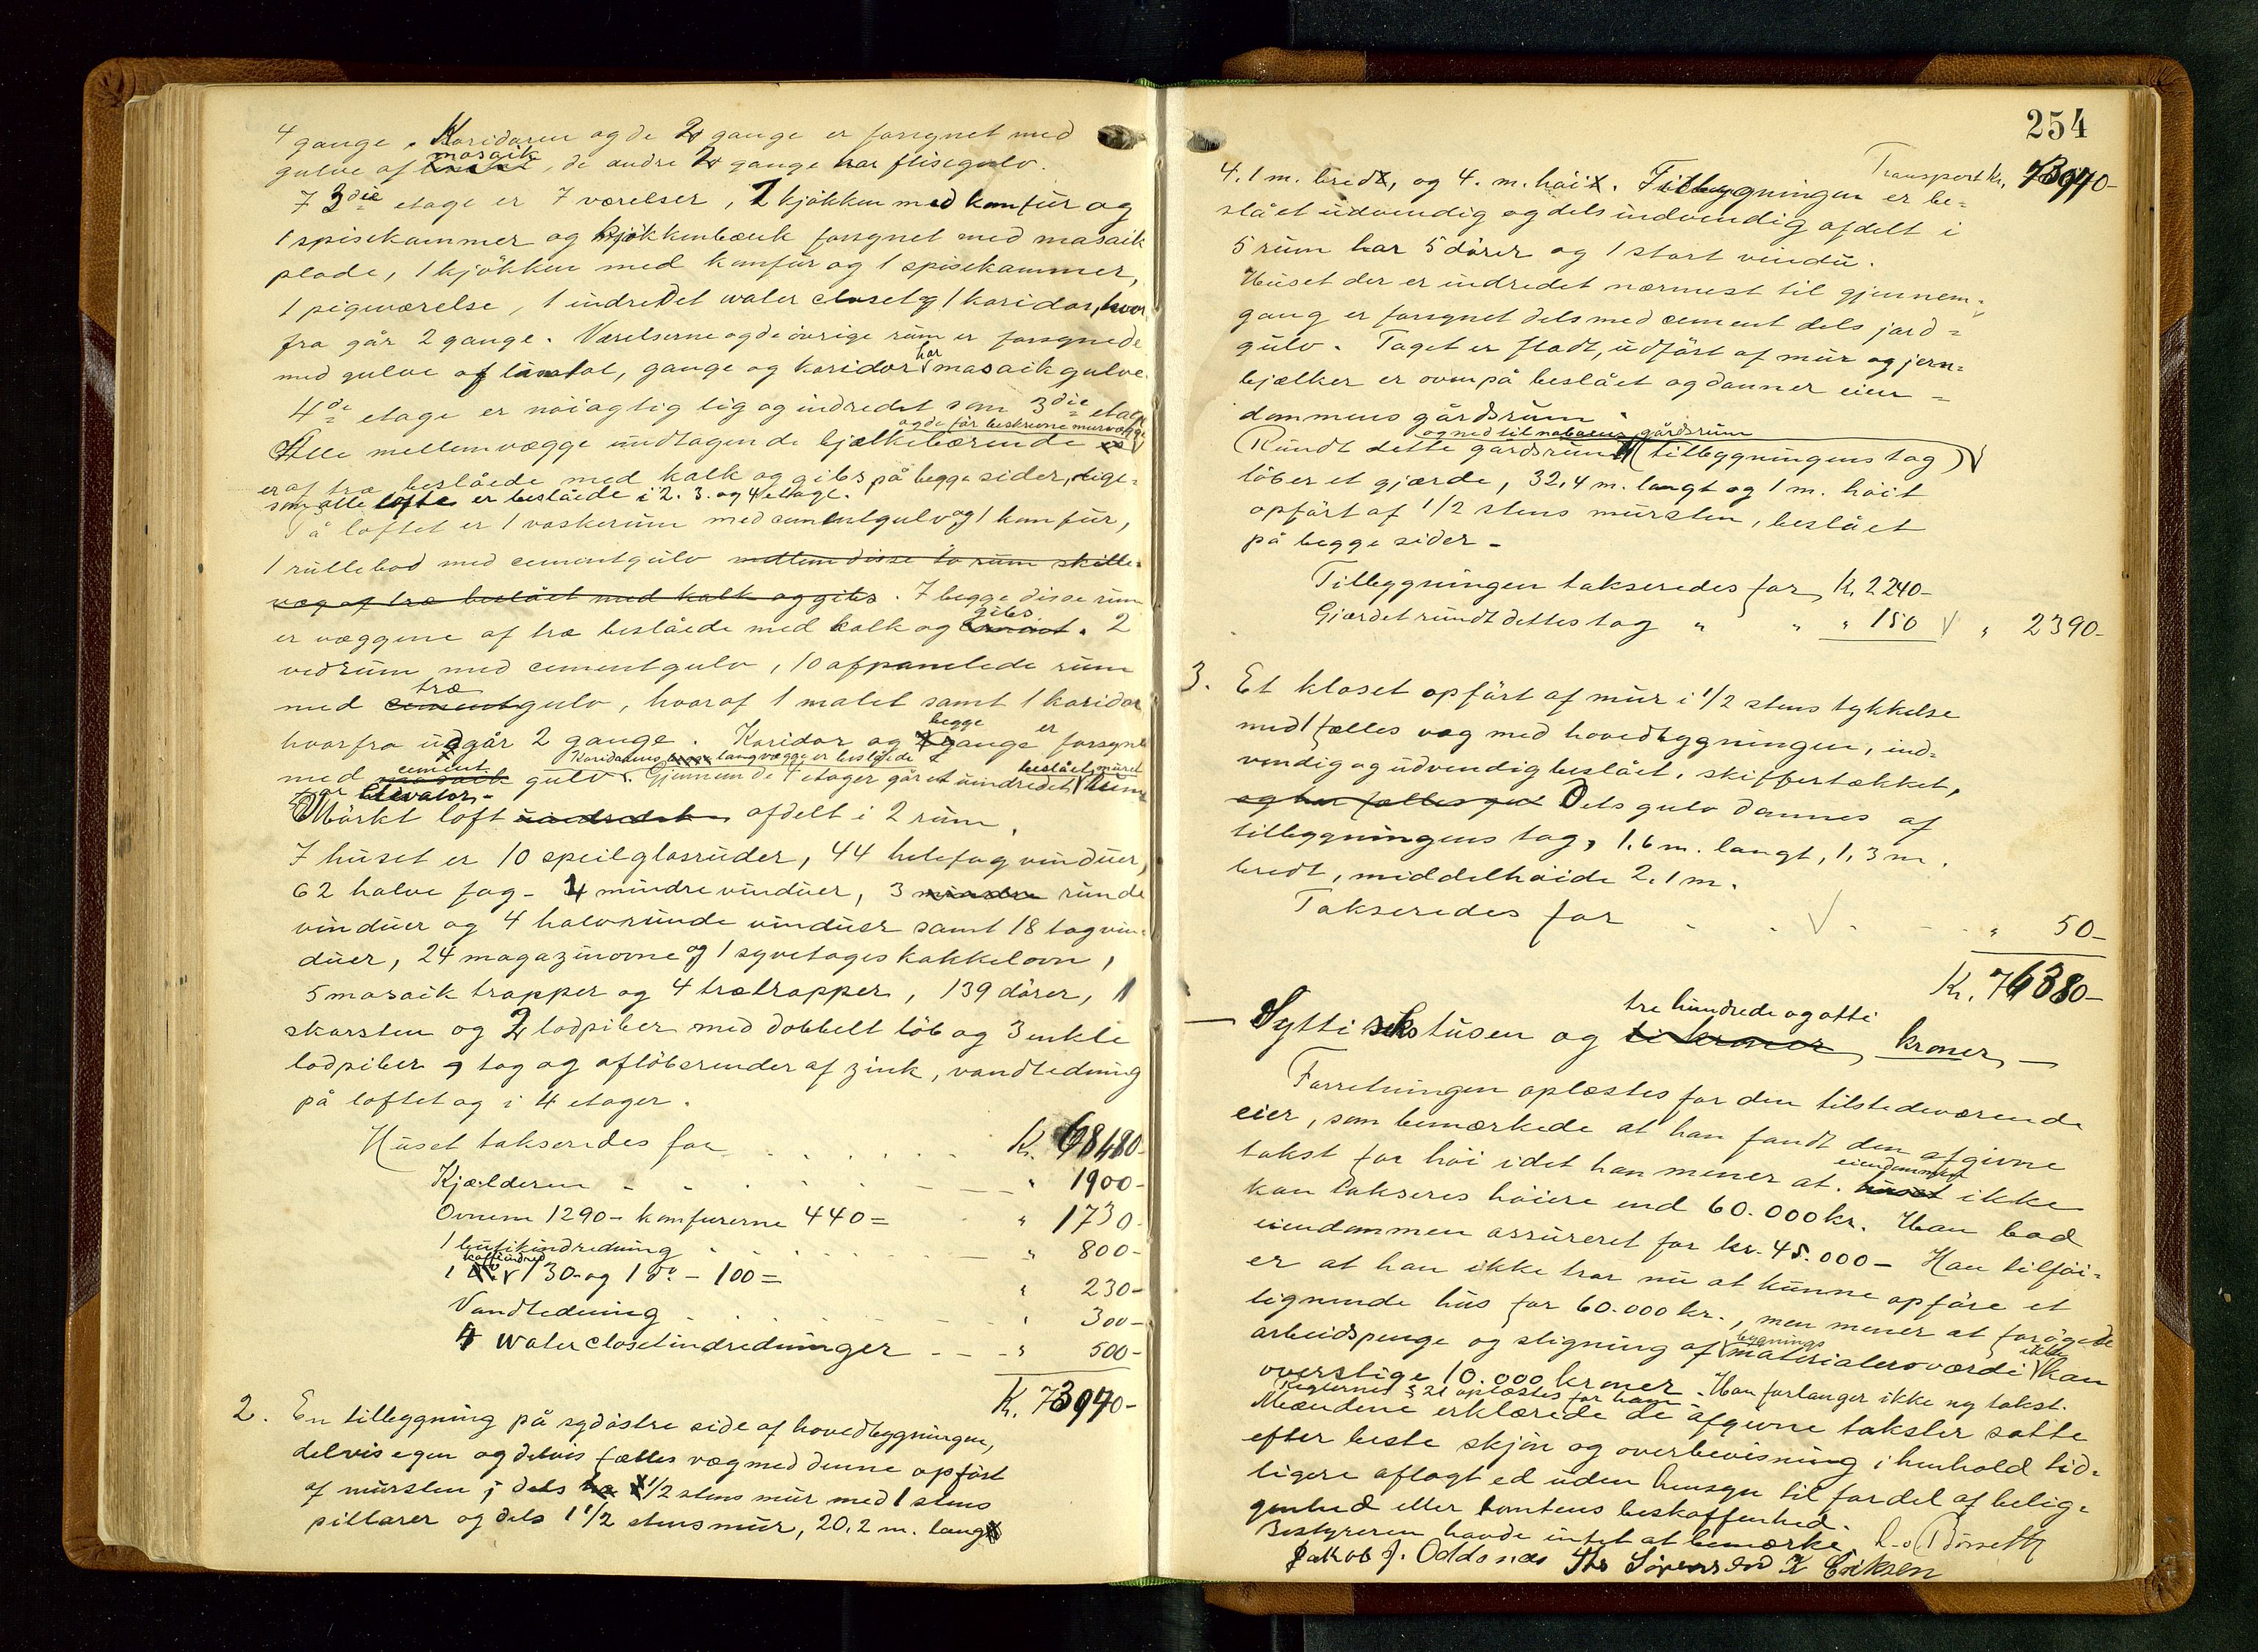 4 gange. Koridoren og de 2 gange er forsynet med
gulve af mosaik, de andre 2 gange har flisegulv.
I 3die etage er 7 værelser, 1 kjøkken med komfur og
1 spisekammer og kjøkkenbænk forsynet med mosaik
plade, 1 kjökken med komfur og 1 spisekammer,
1 pigeværelse, 1 indredet water closet og 1 koridor, hvor
fra går 2 gange. Værelserne og de övrige rum er forsynede
med gulve af linolol, gange og koridor har mosaik gulve.
4de etage er nöiagtig lig og indredet som 3die etage
og de för beskrevne murvægge
Alle mellemvægge undtagen de bjælkebærende
er af træ beslåede med kalk og gibs på begge sider, lige-
som alle lofte er beslåede i 2. 3. og 4 etage.
På loftet er 1 vaskerum med cementgulv og 1 komfur,
1 rullebod med cementgulv mellem disse to rum skille-
væg af træ beslået med kalk og gibs. I begge disse rum
er væggene af træ beslåede med kalk og gibs. 2
vedrum med cementgulv, 10 afpanelede rum
med cement trægulv, hvoraf 1 malet samt 1 koridor
hvorfra udgår 2 gange. Koridor og begge gange er forsynet
med mosaik cement gulv. Koridorens langvægge er beslåede
Gjennem de 4 etager går et uindredet beslået muret rum
for elevator.
Mörkt loft uindredet afdelt i 2 rum.
I huset er 10 speilglasruder, 44 hele fag vinduer,
62 halve fag - 4 mindre vinduer, 3 mindre runde
vinduer og 4 halvrunde vinduer samt 18 tagvin-
duer, 24 magazinovne og 1 syvetages kakkelovn,
5 mosaik trapper og 4 trætrapper, 139 dörer, 1
skorsten og 2 lodpiber med dobbelt löb og 3 enkle
lodpiber, tag og aflöbsrender af zink, vandledning
på loftet og i 4 etager.
Huset takseredes for . . . . . . Kr. 68480-
Kjælderen - - . . . - - " 1900-
Ovnene 1290- komfurerne 440= . " 1730-
1 butikindredning . . . . . - " 800-
1 kottindred 130- og 1 do - 100= " 230-
Vandledning . . . . . . - " 300-
4 water closetindredninger - - - " 500-
Kr. 73940-
2. En tilbygning på sydöstre side af hovedbygningen,
delvis egen og delvis fælles væg med denne opfört
af mursten i dels 1/2 stens mur med 1 stens
pillarer og dels 1 1/2 stens mur, 20.2 m. lang
254
Transport kr. 73940-
4.1 m. bred, og 4. m. höi. Tilbygningen er be-
slået udvendig og dels indvendig afdelt i
5 rum har 5 dörer og 1 stort vindu.
Huset der er indredet nærmest til gjennem-
gang er forsynet dels med cement dels jord-
gulv. Taget er fladt, udfört af mur og jern-
bjælker er ovenpå beslået og danner eien-
dommens gårdsrum.
og ned til naboens gårdsrum
Rundt dette gårdsrum (tilbyggningens tag)
löber et gjærde, 32,4 m. langt og 1 m. höit
opfört af 1/2 stens mursten, beslået
på begge sider -
Tilbyggningen takseredes for Kr. 2240-
Gjærdet rundt dettes tag " " " 150 " 2390-
3. Et kloset opfört af mur i 1/2 stens tykkelse
med 1 fælles væg med hovedbygningen, ind-
vendig og udvendig beslået, skiffertækket,
og har fælles gul Dets gulv dannes af
tilbyggningens tag, 1,6 m. langt, 1,3 m.
bredt, middelhöide 2.1 m.
Takseredes for . . . - - . " 50-
Kr. 76380-
tre hundrede og otti
— Sytti seks tusen og ti kroner, kroner, —
Forretningen oplæstes for den tilstedeværende
eier, som bemærkede at han fandt den afgivne
takst for höi idet han mener at huset eiendommen ikke
kan takseres höiere end 60.000 kr. Han bad
eiendommen assureret for kr. 45.000 - Han tilföi-
er at han ikke tror nu at kunne opföre et
lignende hus for 60.000 kr., men mener at forögede
arbeidspenge og stigning af bygnings materialersværdi ikke kan
overstige 10.000 kroner. Han forlanger ikke ny takst.
Reglernes § 21 oplæstes for ham
Mændene erklærede de afgivne takster satte
efter beste skjön og overbevisning i henhold tid-
ligere aflagt ed uden hensyn til fordel af belig-
genhed eller tomtens beskaffenhed.
Bestyreren havde intet at bemærke.
Jakob J. Oddsnæs Ths Sörensen K Eriksen